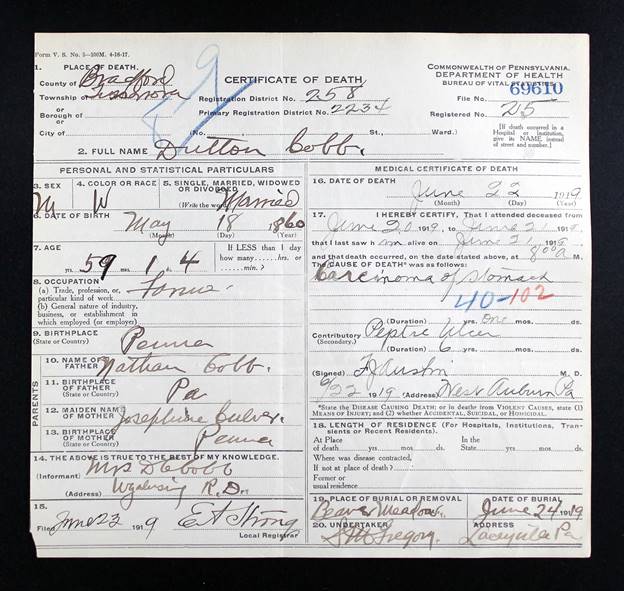 Form V. S. No. 5—100M. 4-16-17.
1. PLACE OF DEATH.
County of Bradford
Township of Tuscarora
or
Borough of
or
City of
CERTIFICATE OF DEATH.
Registration District No. 258
Primary Registration District No. 2234
(No. St., Ward.)
COMMONWEALTH OF PENNSYLVANIA.
DEPARTMENT OF HEALTH
BUREAU OF VITAL STATISTICS
File No. 69610
Registered No. 25
[If death occurred in a Hospital or Institution, give its NAME instead of street and number.]
2. FULL NAME Dutton Cobb.
PERSONAL AND STATISTICAL PARTICULARS
3. SEX M
4. COLOR OR RACE W
5. SINGLE, MARRIED, WIDOWED OR DIVORCED
(Write the word) Married
6. DATE OF BIRTH May 18 1860
(Month) (Day) (Year)
7. AGE
59 yrs. 1 mos. 4 ds.
If LESS than 1 day how many hrs. or min.?
8. OCCUPATION
(a) Trade, profession, or particular kind of work Farmer
(b) General nature of industry, business, or establishment in which employed (or employer)
9. BIRTHPLACE
(State or Country) Penna
PARENTS
10. NAME OF FATHER Nathan Cobb.
11. BIRTHPLACE OF FATHER (State or Country) Pa
12. MAIDEN NAME OF MOTHER Josephine Culver.
13. BIRTHPLACE OF MOTHER (State or Country) Penna
14. THE ABOVE IS TRUE TO THE BEST OF MY KNOWLEDGE.
(Informant) Mrs D Cobb
(Address) Wyalusing R.D.
15.
Filed June 23 1919 E A Strong
Local Registrar
MEDICAL CERTIFICATE OF DEATH
16. DATE OF DEATH
June 22 1919
(Month) (Day) (Year)
17. I HEREBY CERTIFY, That I attended deceased from
June 20 1919, to June 21 1919,
that I last saw him alive on June 21 1919
and that death occurred, on the date stated above, at 8 00 a M.
The CAUSE OF DEATH* was as follows:
Carcinoma of Stomach
40-102
(Duration) yrs. one mos. ds.
Contributory (Secondary) Peptic Ulcer
(Duration) yrs. 6 mos. ds.
(Signed) F J Austin M. D.
6/22 1919 (Address) West Auburn Pa
*State the DISEASE CAUSING DEATH; or in death from VIOLENT CAUSES, state (1) MEANS OF INJURY; and (2) whether ACCIDENTAL, SUICIDAL, OR HOMICIDAL.
18. LENGTH OF RESIDENCE (For Hospitals, Institutions, Transients or Recent Residents).
At Place of death yrs. mos. ds. In the State yrs. mos. ds.
Where was disease contracted,
If not at place of death?
Former or usual residence
19. PLACE OF BURIAL OR REMOVAL
Beaver Meadows.
DATE OF BURIAL
June 24 1919
20. UNDERTAKER
Gregory.
ADDRESS
Laceyville Pa